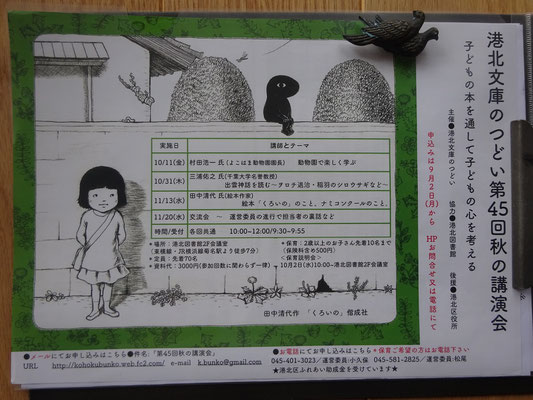 港北文庫のつどい第45回秋の講演会
子どもの本を通して子どもの心を考える
主催●港北文庫のつどい 協力●港北図書館 後援●港北区役所
申込みは9月2日(月)から HPお問合せ又は電話にて
実施日 講師とテーマ
10/11(金) 村田浩一 氏(よこはま動物園園長) 動物園で楽しく学ぶ
10/31(木) 三浦佑之 氏(千葉大学名誉教授)
出雲神話を読む~ヲロチ退治・稲羽のシロウサギなど~
11/13(水) 田中清代 氏(絵本作家)
絵本「くろいの」のこと、ナミコンクールのこと。
11/20(水) 交流会 ~ 運営委員の進行で担当者の裏話など
時間/受付 各回共通 10:00~12:00/9:30~9:55
*場所:港北図書館2F会議室
(東横線・JR横浜線菊名駅より徒歩7分)
*定員:先着70名
*資料代:3000円(参加回数に関わらず一律)
*保育:2歳以上のお子さん先着10名まで
(保険料含め500円)
<保育説明会>
・10月2日(水)10:00~港北図書館2F会議室
田中清代作 「くろいの」 偕成社
●メールにてお申し込みはこちら●件名:「第45回秋の講演会」
URL http://kohokubunko.web.fc2.com/ e-mail k.bunko@gmail.com
●お電話にてお申し込みはこちら*保育ご希望の方はお電話下さい
045-401-3023/運営委員:小久保 045-581-2825/運営委員:松尾
★港北区ふれあい助成金を受けています★